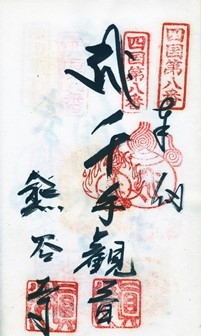 奉納
四国第八番
四国第八番
千手観音
熊谷寺